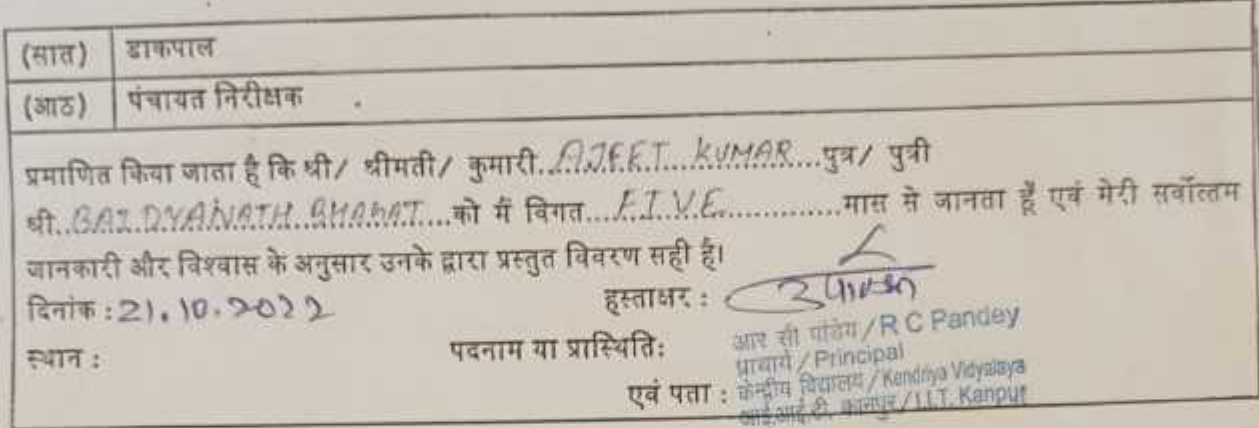 (सात) डाकपाल
(आठ) पंचायत निरीक्षक
प्रमाणित किया जाता है कि श्री/ श्रीमती/ कुमारी..AJEET...KUMAR...पुत्र/ पुत्री
श्री..BAIDYANATH..BHAGAT...को मैं विगत...FIVE.............मास से जानता हूँ एवं मेरी सर्वोत्तम
जानकारी और विश्वास के अनुसार उनके द्वारा प्रस्तुत विवरण सही है।
दिनांक : 21.10.2022 हस्ताक्षर :
स्थान : पदनाम या प्रास्थिति: आर सी पांडेय / R C Pandey
प्राचार्य / Principal
एवं पता : केन्द्रीय विद्यालय / Kendriya Vidyalaya
आई.आई.टी. कानपुर / I.I.T. Kanpur